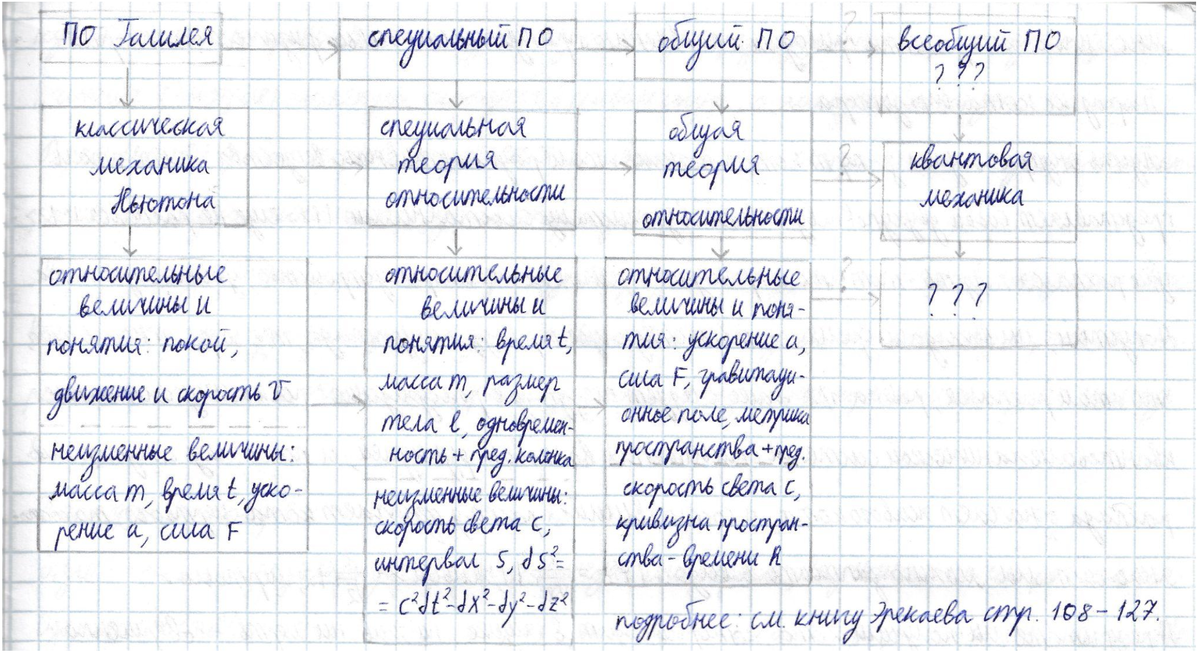 ПО Галилея
специальный ПО
общий ПО
?
всеобщий ПО
? ? ?
классическая
механика
Ньютона
специальная
теория
относительности
общая
теория
относительности
?
квантовая
механика
относительные
величины и
понятия: покой,
движение и скорость v
неизменные величины:
масса m, время t, уско-
рение a, сила F
относительные
величины и
понятия: время t,
масса m, размер
тела l, одновремен-
ность + пред. колонка
неизменные величины:
скорость света c,
интервал S, dS²=
= c²dt²-dx²-dy²-dz²
относительные
величины и поня-
тия: ускорение a,
сила F, гравитаци-
онное поле, метрика
пространства + пред.
скорость света c,
кривизна простран-
ства-времени R
?
? ? ?
подробнее: см. книгу Эрекаева стр. 108-127.